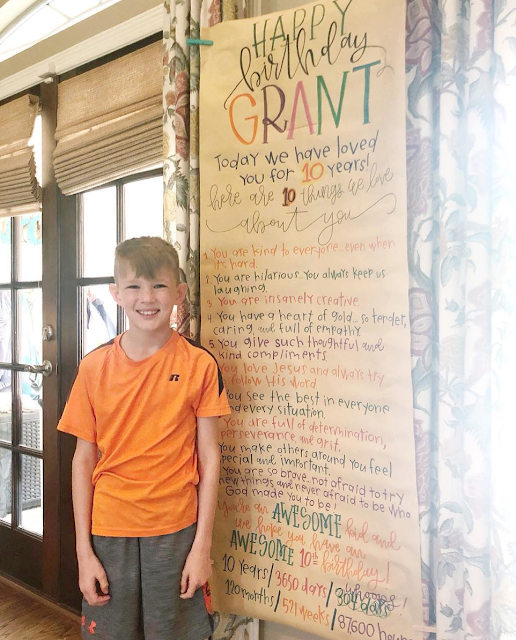 HAPPY
birthday
GRANT
Today we have loved
you for 10 years!
here are 10 things we love
about you
1. You are kind to everyone even when
it's hard.
2. You are hilarious. You always keep us
laughing.
3. You are insanely creative.
4. You have a heart of gold... so tender,
caring, and full of empathy
5. You give such thoughtful and
kind compliments
You love Jesus and always try
follow His Word
You see the best in everyone
every situation.
You are full of determination,
perseverance, and grit.
You make others around you feel
special and important.
You are so brave. not afraid to try
new things and never afraid to be who
God made you to be!
You're an AWESOME kid and
we hope you have an
AWESOME 10th birthday!
10 Years / 3650 days / whoops!
120 months / 521 weeks / 87,600 hours
R